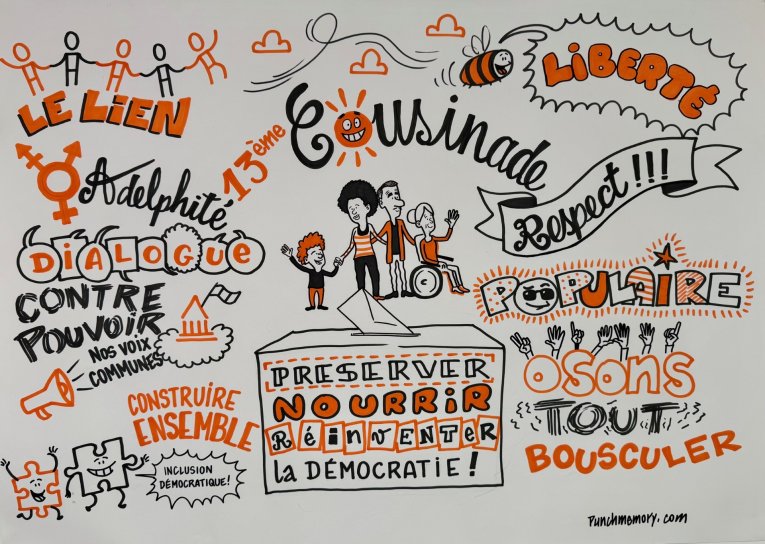 LE LIEN
13ème Cousinade
LIBERTÉ
Adelphité
Respect !!!
DIALOGUE
POPULAIRE
CONTRE
POUVOIR
NOS VOIX
COMMUNES
OSONS
TOUT
BOUSCULER
CONSTRUIRE
ENSEMBLE
INCLUSION
DÉMOCRATIQUE !
PRESERVER
NOURRIR
RéiNVENTER
la DÉMOCRATIE !
Punchmemory.com